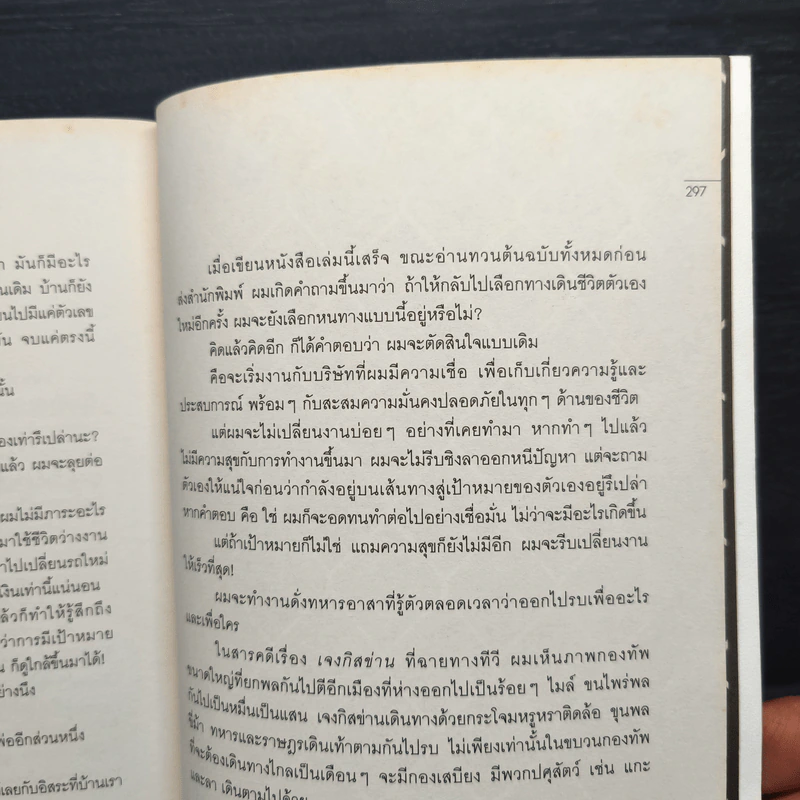 า มันก็มีอะไร
นเดิม บ้านก็ยัง
นไปมีแค่ตัวเลข
จบแค่ตรงนี้
องเท่ารึเปล่านะ?
แล้ว ผมจะลุยต่อ
ผมไม่มีภาระอะไร
มาใช้ชีวิตว่างงาน
าไปเปลี่ยนรถใหม่
เงินเท่านี้แน่นอน
ล้วก็ทำให้รู้สึกถึง
ว่าการมีเป้าหมาย
ก็ดูใกล้ขึ้นมาได้!
ย่างนึง
พ่ออีกส่วนหนึ่ง
เลยกับอิสระที่บ้านเรา
297
เมื่อเขียนหนังสือเล่มนี้เสร็จ ขณะอ่านทวนต้นฉบับทั้งหมดก่อน
ส่งสำนักพิมพ์ ผมเกิดคำถามขึ้นมาว่า ถ้าให้กลับไปเลือกทางเดินชีวิตตัวเอง
ใหม่อีกครั้ง ผมจะยังเลือกหนทางแบบนี้อยู่หรือไม่?
คิดแล้วคิดอีก ก็ได้คำตอบว่า ผมจะตัดสินใจแบบเดิม
คือจะเริ่มงานกับบริษัทที่ผมมีความเชื่อ เพื่อเก็บเกี่ยวความรู้และ
ประสบการณ์ พร้อมๆ กับสะสมความมั่นคงปลอดภัยในทุกๆ ด้านของชีวิต
แต่ผมจะไม่เปลี่ยนงานบ่อยๆ อย่างที่เคยทำมา หากทำๆ ไปแล้ว
ไม่มีความสุขกับการทำงานขึ้นมา ผมจะไม่รีบชิงลาออกหนีปัญหา แต่จะถาม
ตัวเองให้แน่ใจก่อนว่ากำลังอยู่บนเส้นทางสู่เป้าหมายของตัวเองอยู่รึเปล่า
หากคำตอบ คือ ใช่ ผมก็จะอดทนทำต่อไปอย่างเชื่อมั่น ไม่ว่าจะมีอะไรเกิดขึ้น
แต่ถ้าเป้าหมายก็ไม่ใช่ แถมความสุขก็ยังไม่มีอีก ผมจะรีบเปลี่ยนงาน
ให้เร็วที่สุด!
ผมจะทำงานดั่งทหารอาสาที่รู้ตัวตลอดเวลาว่าออกไปรบเพื่ออะไร
และเพื่อใคร
ในสารคดีเรื่อง เจงกิสข่าน ที่ฉายทางทีวี ผมเห็นภาพกองทัพ
ขนาดใหญ่ที่ยกพลกันไปตีอีกเมืองที่ห่างออกไปเป็นร้อยๆ ไมล์ ขนไพร่พล
กันไปเป็นหมื่นเป็นแสน เจงกิสข่านเดินทางด้วยกระโจมหรูหราติดล้อ ขุนพล
ขี่ม้า ทหารและราษฎรเดินเท้าตามกันไปรบ ไม่เพียงเท่านั้นในขบวนกองทัพ
ที่จะต้องเดินทางไกลเป็นเดือนๆ จะมีกองเสบียง มีพวกปศุสัตว์ เช่น แกะ
และลา เดินตามไปด้วย